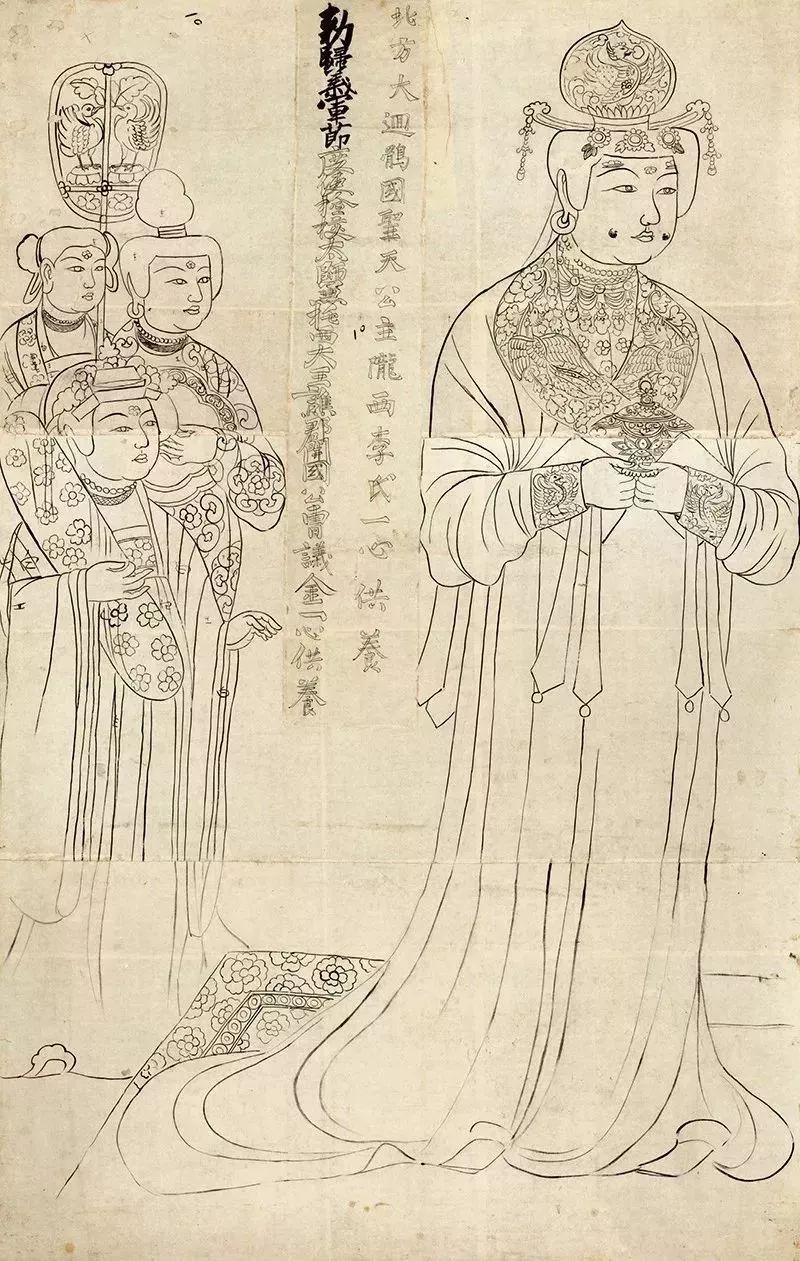 北方大迴鶻國聖天公主隴西李氏一心供養
勑歸義軍節度使檢校太師兼托西大王譙郡開國公曹議金一心供養